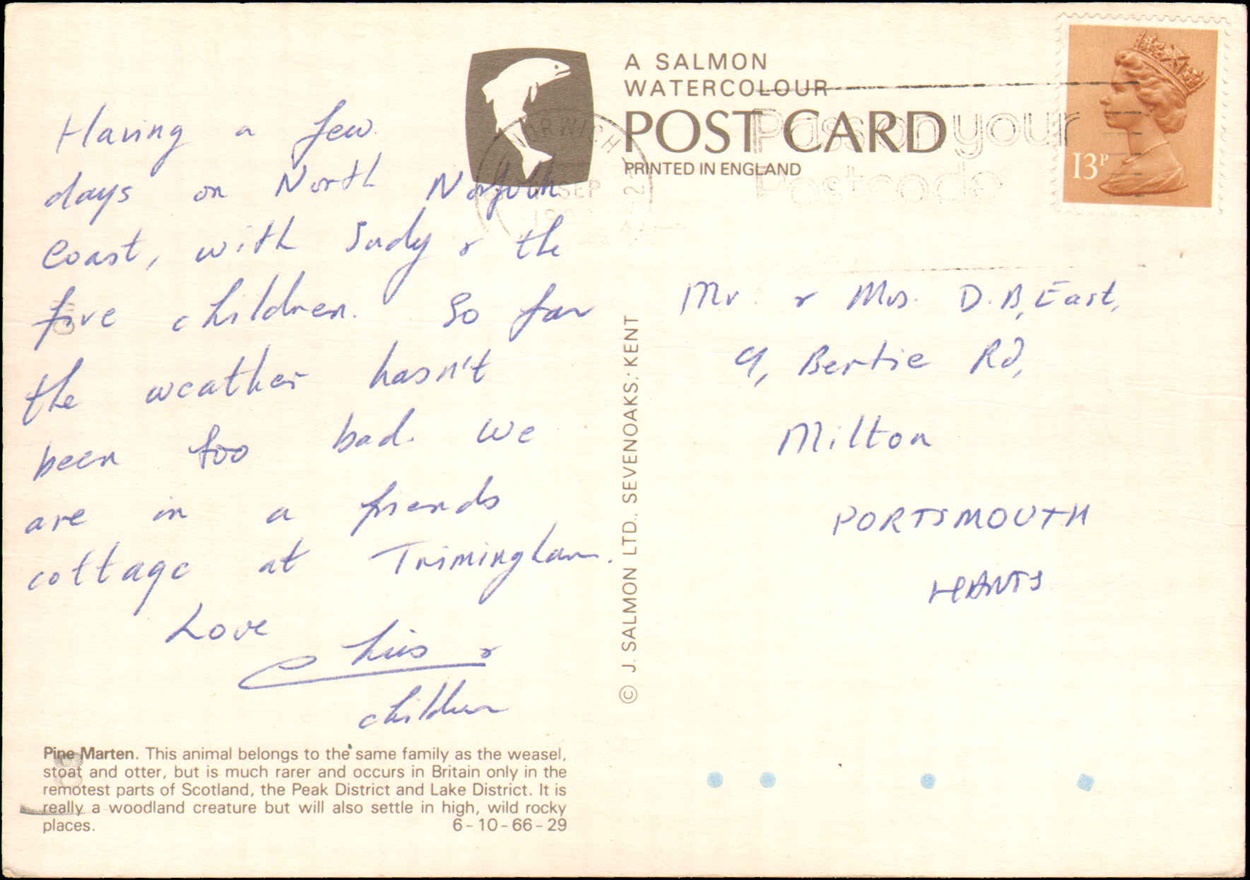 A SALMON
WATERCOLOUR
POST CARD
PRINTED IN ENGLAND
NORWICH
SEP
Pass on your
Postcode
13P
Having a few
days on North Norfolk
Coast, with Judy & the
five children. So far
the weather hasn't
been too bad. We
are in a friends
cottage at Trimingham.
Love
Chris &
children
Pine Marten. This animal belongs to the same family as the weasel,
stoat and otter, but is much rarer and occurs in Britain only in the
remotest parts of Scotland, the Peak District and Lake District. It is
really a woodland creature but will also settle in high, wild rocky
places. 6-10-66-29
© J. SALMON LTD., SEVENOAKS. KENT
Mr & Mrs. D.B, East,
9, Bertie Rd,
Milton
PORTSMOUTH
HANTS